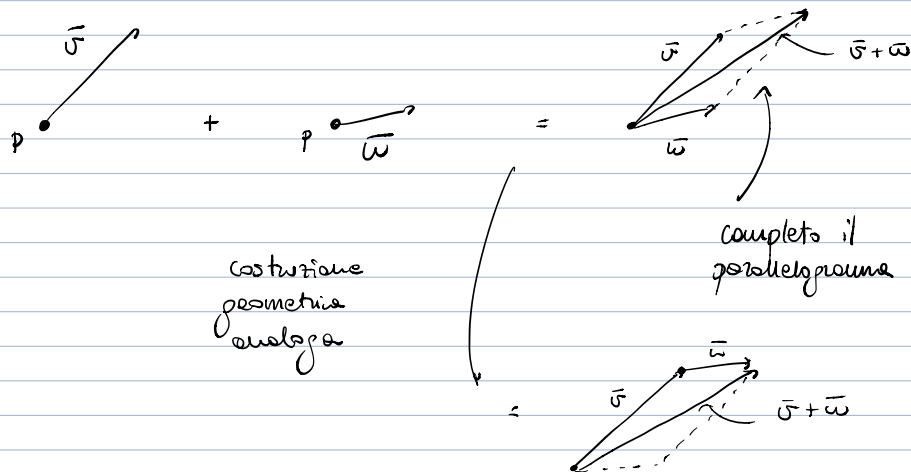 v̄
v̄
v̄ + w̄
P
+
P
w̄
=
w̄
completo il
parallelogramma
costruzione
geometrica
analoga
w̄
v̄
=
v̄ + w̄